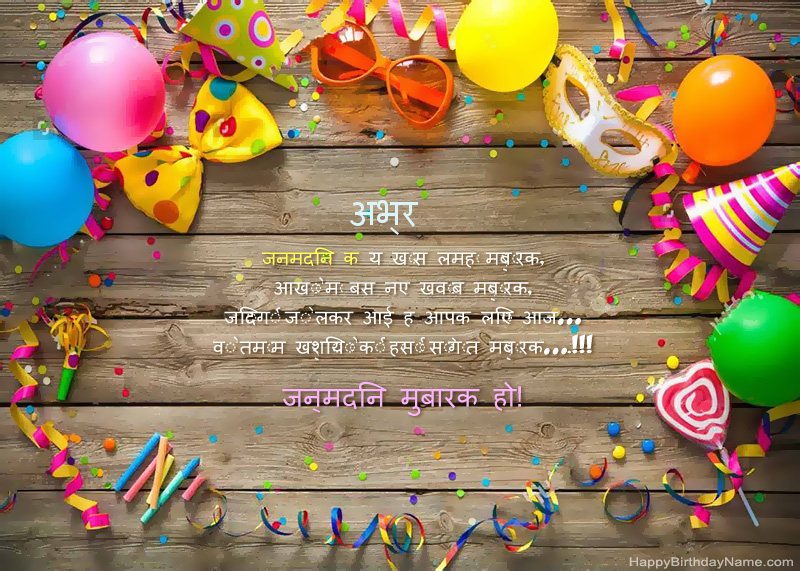 अभ्र
जनमदिन क य खास लमहा मबारक,
आखों में बसे नए खवाब मबारक,
जिंदगी जो लेकर आई ह आपक लिए आज...
वो तमाम खशियों की हसीं सौगात मबारक...!!!
जन्मदिन मुबारक हो!
HappyBirthdayName.com